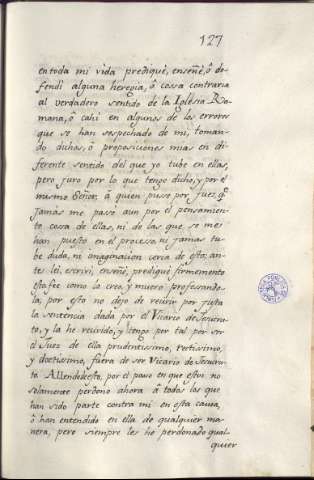 127
en toda mi vida prediquè, enseñè, ò de-
fendi alguna heregia, ò cossa contraria
al verdadero sentido de la Iglesia Ro-
mana, ò cahi en algunos de los errores
que se han sospechado de mi, toman-
do dichos, ò proposiciones mias en di-
ferente sentido del que yo tube en ellas,
pero juro por lo que tengo dicho, y por el
mismo Señor, à quien puse por Juez, q.e
Jamas me paso aun por el pensamien-
to cosa de ellas, ni de las que se me
han puesto en el processo, ni jamas tu-
be duda, ni imaginacion cerca de esto; an-
tes leì, escrivì, enseñè, prediquè firmemente
esta feè como la creo, y muero professando-
la, por esto no dejo de recivir por justa
la sentencia dada por el Vicario de Jesucris-
to, y la he recivido, y tengo por tal por ser
el Juez de ella prudentissimo, rectissimo,
y doctissimo, fuera de ser Vicario de Jesucris-
to Allende de esto, por el paso en que estoi no
solamente perdono ahora à todos los que
han sido parte contra mi en esta causa,
ò han entendido en ella de qualquier ma-
nera, pero siempre les hè perdonado qual-
quier